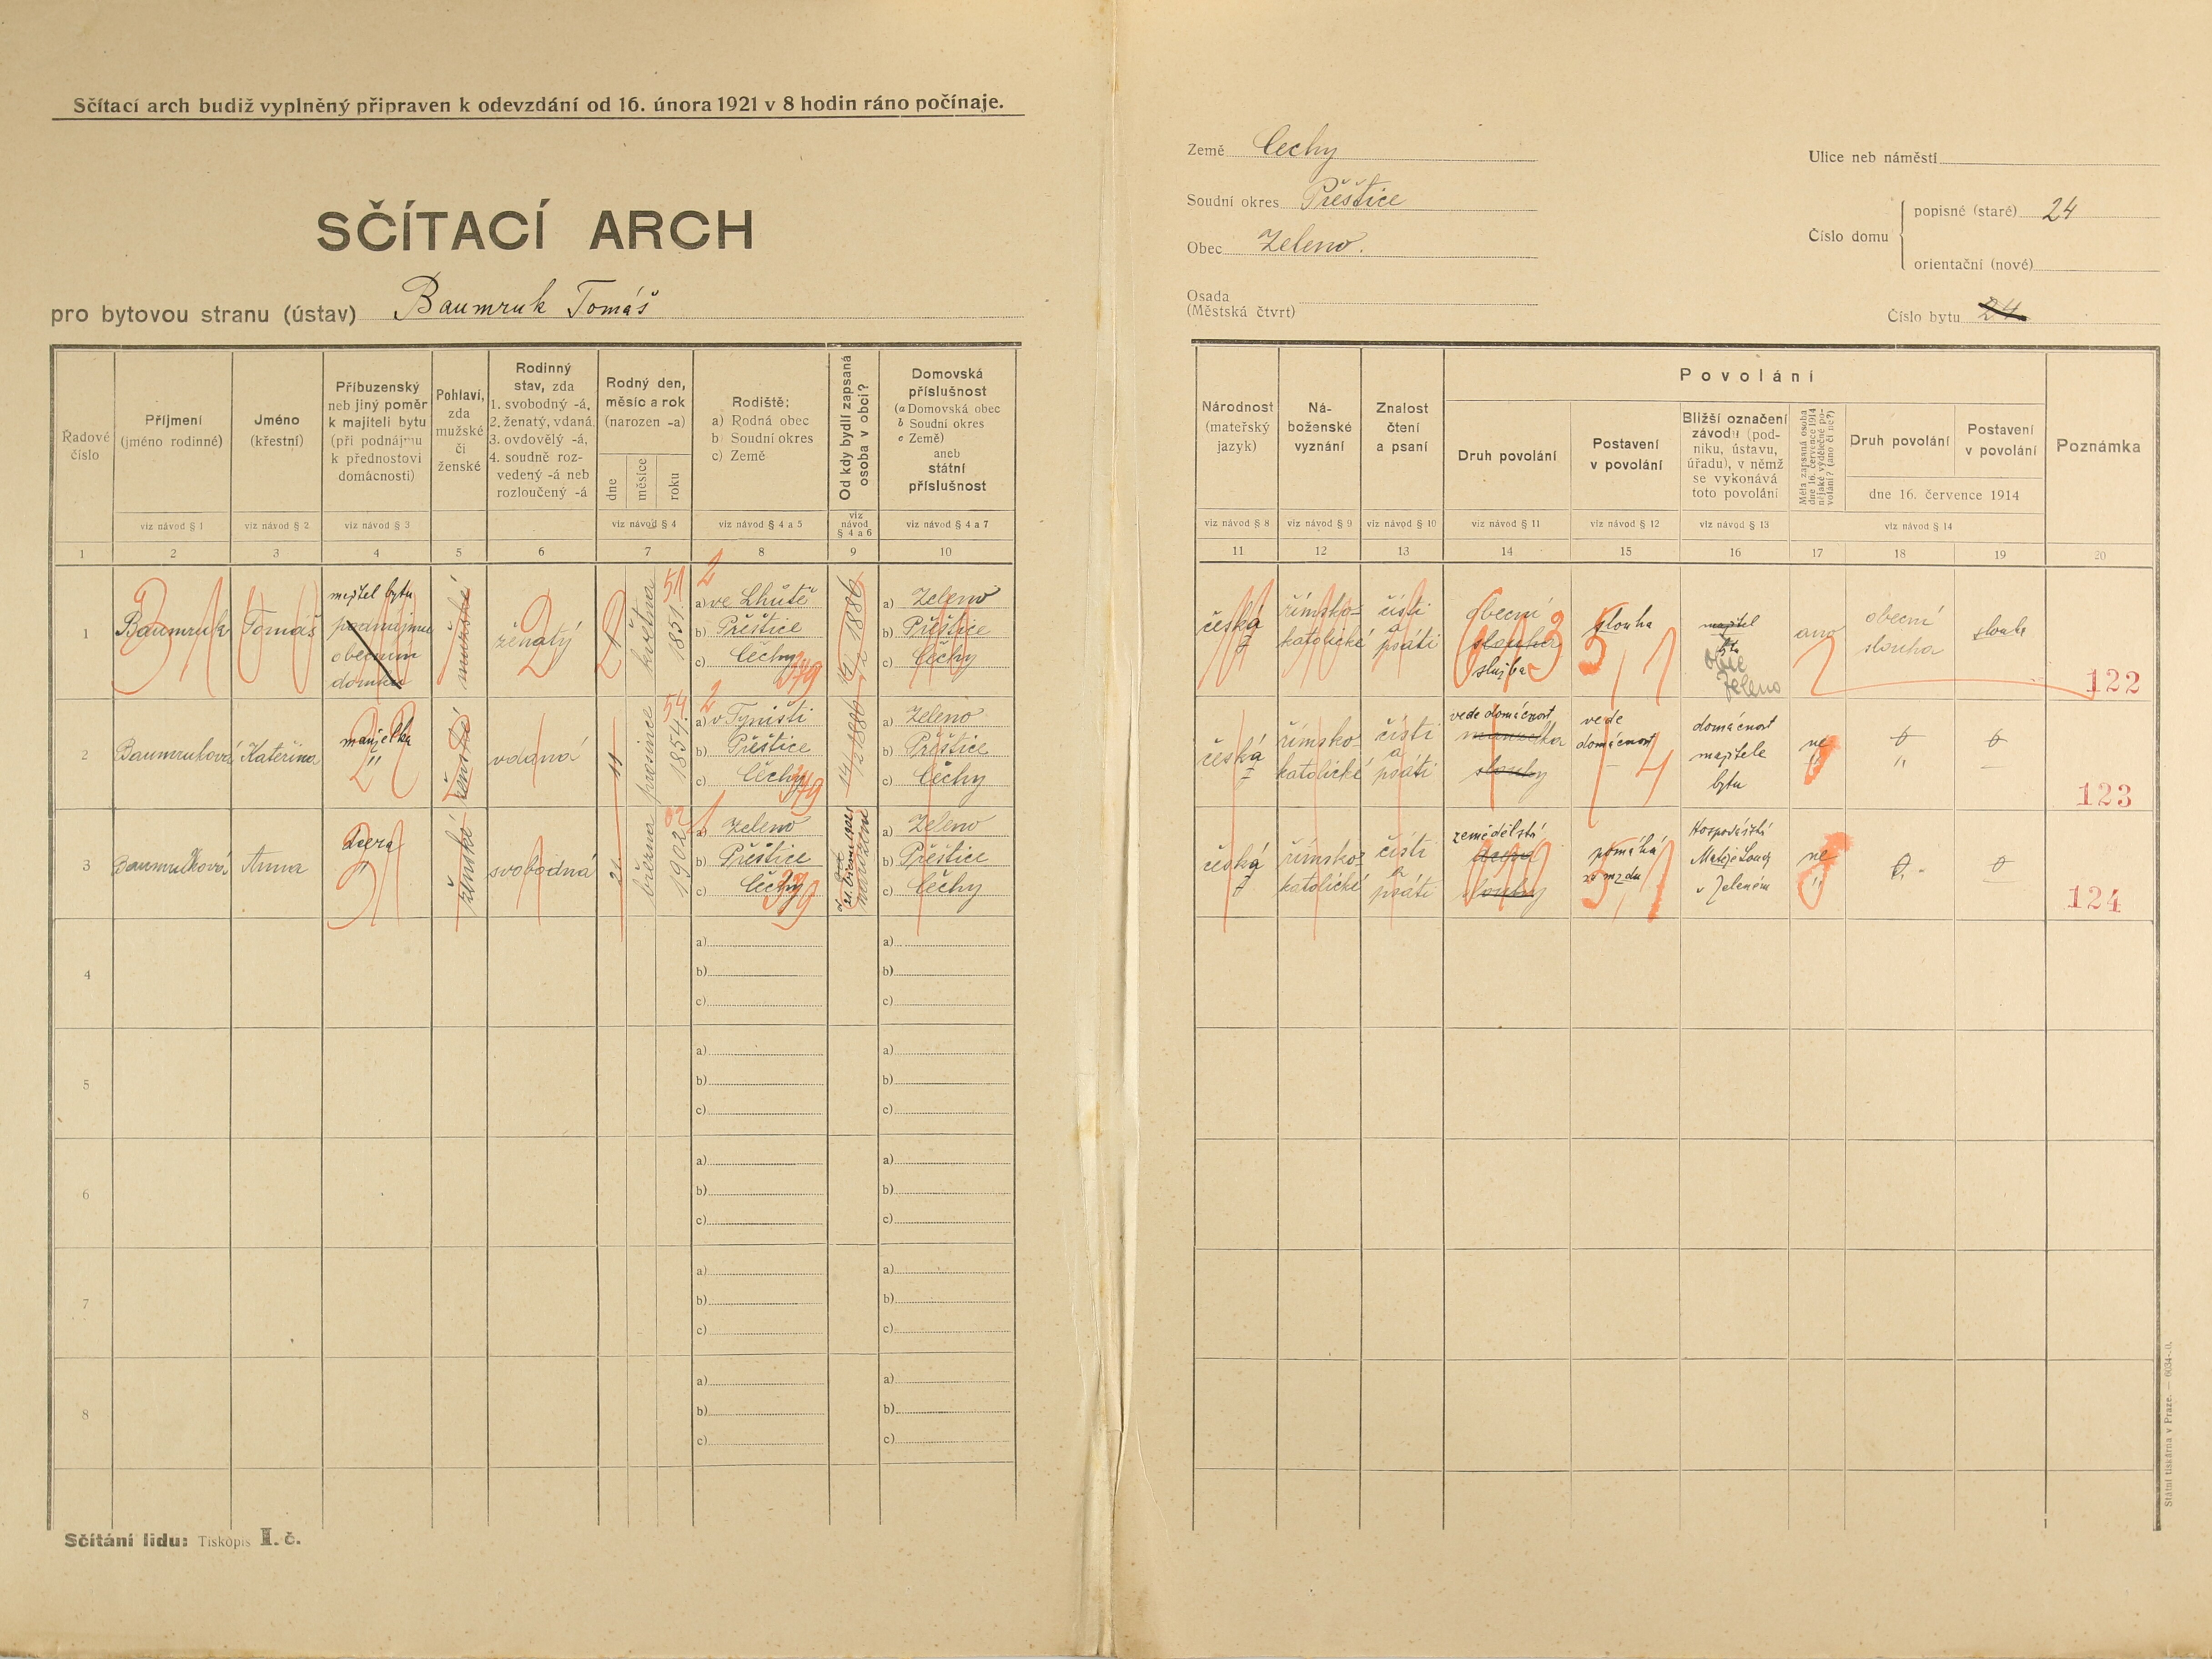 Sčítací arch budiž vyplněný připraven k odevzdání od 16. února 1921 v 8 hodin ráno počínaje.
SČÍTACÍ ARCH
pro bytovou stranu (ústav) Baumruk Tomáš
Země Čechy
Soudní okres Přeštice
Obec Zeleno.
Osada
(Městská čtvrt)
Ulice neb náměstí
Číslo domu
popisné (staré) 24
orientační (nové)
Číslo bytu 24
Řadové
číslo
Příjmení
(jméno rodinné)
Jméno
(křestní)
Příbuzenský
neb jiný poměr
k majiteli bytu
(při podnájmu
k přednostovi
domácnosti)
Pohlaví,
zda
mužské
či
ženské
Rodinný
stav, zda
1. svobodný -á,
2. ženatý, vdaná
3. ovdovělý -á,
4. soudně roz-
vedený -á neb
rozloučený -á
Rodný den,
měsíc a rok
(narozen -a)
dne
měsíce
roku
Rodiště:
a) Rodná obec
b) Soudní okres
c) Země
Od kdy bydlí zapsaná
osoba v obci?
Domovská
příslušnost
(a Domovská obec
b Soudní okres
c Země)
aneb
státní
příslušnost
viz návod § 1
viz návod § 2
viz návod § 3
viz návod § 4
viz návod § 4 a 5
viz
návod
§ 4 a 6
viz návod § 4 a 7
1 2 3 4 5 6 7 8 9 10
Národnost
(mateřský
jazyk)
Ná-
boženské
vyznání
Znalost
čtení
a psaní
Povolání
Druh povolání
Postavení
v povolání
Bližší označení
závodu (pod-
niku, ústavu,
úřadu), v němž
se vykonává
toto povolání
Měla zapsaná osoba
dne 16. července 1914
nějaké výdělečné po-
volání? (ano či ne?)
Druh povolání
Postavení
v povolání
dne 16. července 1914
Poznámka
viz návod § 8
viz návod § 9
viz návod § 10
viz návod § 11
viz návod § 12
viz návod § 13
viz návod § 14
11 12 13 14 15 16 17 18 19 20
1
Baumruk
Tomáš
majitel bytu
podnájmu
obecním
domku
mužské
ženatý
1
května
1851
51
2
a) ve Lhůtě
b) Přeštice
c) Čechy
379
1886
a) Zeleno
b) Přeštice
c) Čechy
česká
římsko-
katolické
čísti
a
psáti
obecní
slouha
služba
slouha
majitel
obec
Zeleno
ano
obecní
slouha
slouha
122
2
Baumruková
Kateřina
manželka
ženské
vdaná
11
prosince
1854
54
2
a) v Týništi
b) Přeštice
c) Čechy
379
1886
a) Zeleno
b) Přeštice
c) Čechy
česká
římsko-
katolické
čísti
a
psáti
vede domácnost
manželka
slouhy
vede
domácnost
domácnost
majitele
bytu
ne
0
0
123
3
Baumruková
Anna
dcera
ženské
svobodná
21
března
1902
02
1
a) Zeleno
b) Přeštice
c) Čechy
379
od
21. března 1902
narození
a) Zeleno
b) Přeštice
c) Čechy
česká
římsko-
katolické
čísti
a
psáti
zemědělství
dcera
slouhy
pomáhá
za mzdu
Hospodářství
v Zeleném
ne
0
0
124
4
a)
b)
c)
a)
b)
c)
5
a)
b)
c)
a)
b)
c)
6
a)
b)
c)
a)
b)
c)
7
a)
b)
c)
a)
b)
c)
8
a)
b)
c)
a)
b)
c)
Sčítání lidu: Tiskopis I. č.
Státní tiskárna v Praze. — 6034-20.